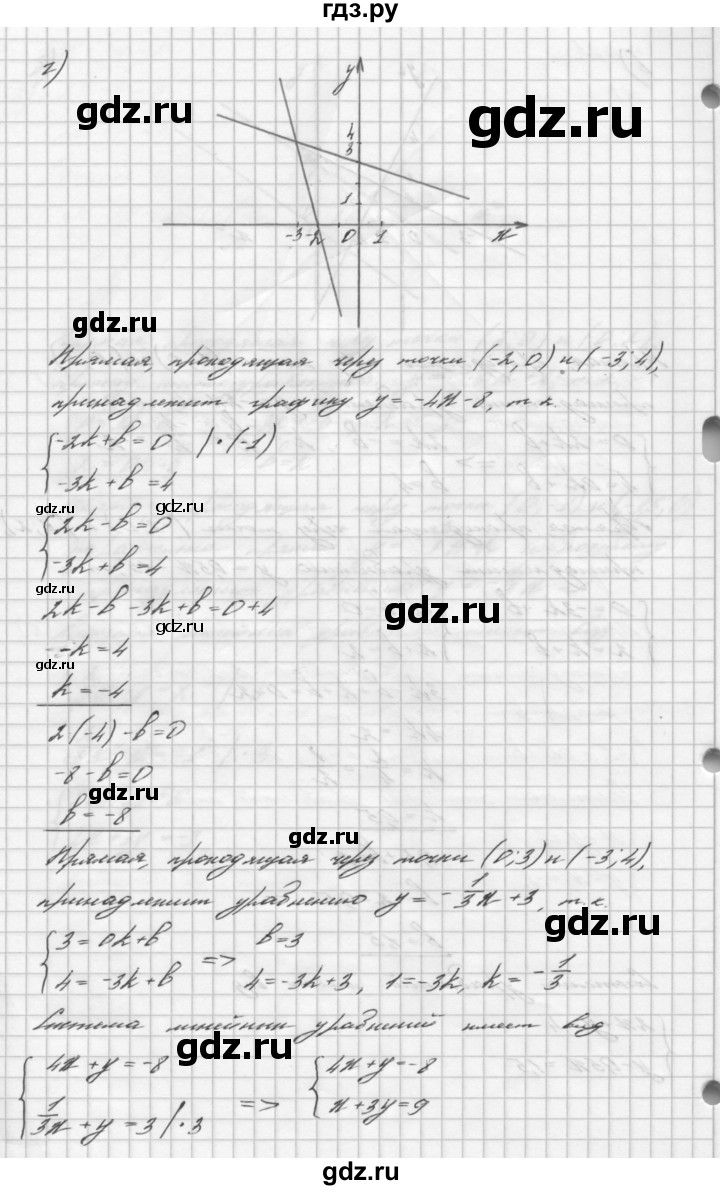 гдз.ру
г)
y
gdz.ru
gdz.ru
4
3
1
-3 -2 0 1 x
gdz.ru
Прямая, проходящая через точки (-2; 0) и (-3; 4),
принадлежит графику y = -4x - 8, т.к.
{ -2k + b = 0 | · (-1)
-3k + b = 4
gdz.ru gdz.ru
{ 2k - b = 0
-3k + b = 4
gdz.ru
2k - b - 3k + b = 0 + 4
gdz.ru
gdz.ru
-k = 4
gdz.ru
k = -4
2(-4) - b = 0
-8 - b = 0
gdz.ru
b = -8
gdz.ru
Прямая, проходящая через точки (0; 3) и (-3; 4),
принадлежит уравнению y = -1/3x + 3, т.к.
gdz.ru
{ 3 = 0k + b => b = 3
4 = -3k + b 4 = -3k + 3, 1 = -3k, k = -1/3
Система линейных уравнений имеет вид
gdz.ru
{ 4x + y = -8 => { 4x + y = -8
1/3x + y = 3 | · 3 x + 3y = 9
gdz.ru